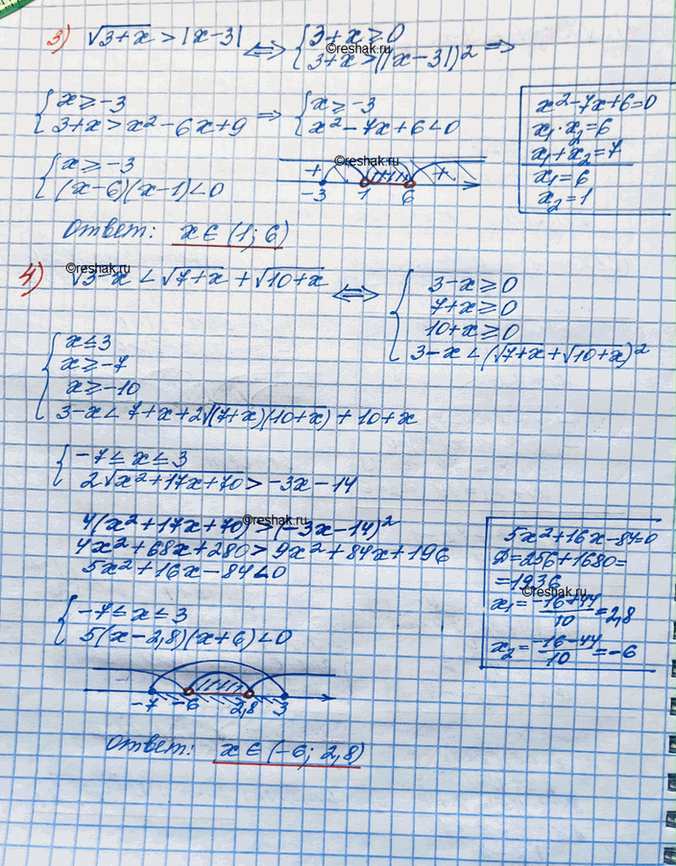 3) √3+x > |x-3| ⟺ { 3+x ≥ 0
3+x > (|x-3|)²  ⇒
©reshak.ru
{ x ≥ -3
3+x > x²-6x+9  ⇒ { x ≥ -3
x²-7x+6 < 0
x²-7x+6=0
x₁·x₂=6
x₁+x₂=7
x₁=6
x₂=1
{ x ≥ -3
(x-6)(x-1) < 0
©reshak.ru
+ +
-3 1 6
Ответ: x ∈ (1; 6)
©reshak.ru
4) √3-x < √7+x + √10+x ⟺ { 3-x ≥ 0
7+x ≥ 0
10+x ≥ 0
3-x < (√7+x + √10+x)²
{ x ≤ 3
x ≥ -7
x ≥ -10
3-x < 7+x+2√(7+x)(10+x) + 10+x
{ -7 ≤ x ≤ 3
2√x²+17x+70 > -3x-14
4(x²+17x+70) > (-3x-14)²
©reshak.ru
4x²+68x+280 > 9x²+84x+196
5x²+16x-84 < 0
5x²+16x-84=0
D=256+1680=
=1936
©reshak.ru
x₁= -16+44/10 =2,8
x₂= -16-44/10 =-6
{ -7 ≤ x ≤ 3
5(x-2,8)(x+6) < 0
-7 -6 2,8 3
Ответ: x ∈ (-6; 2,8)